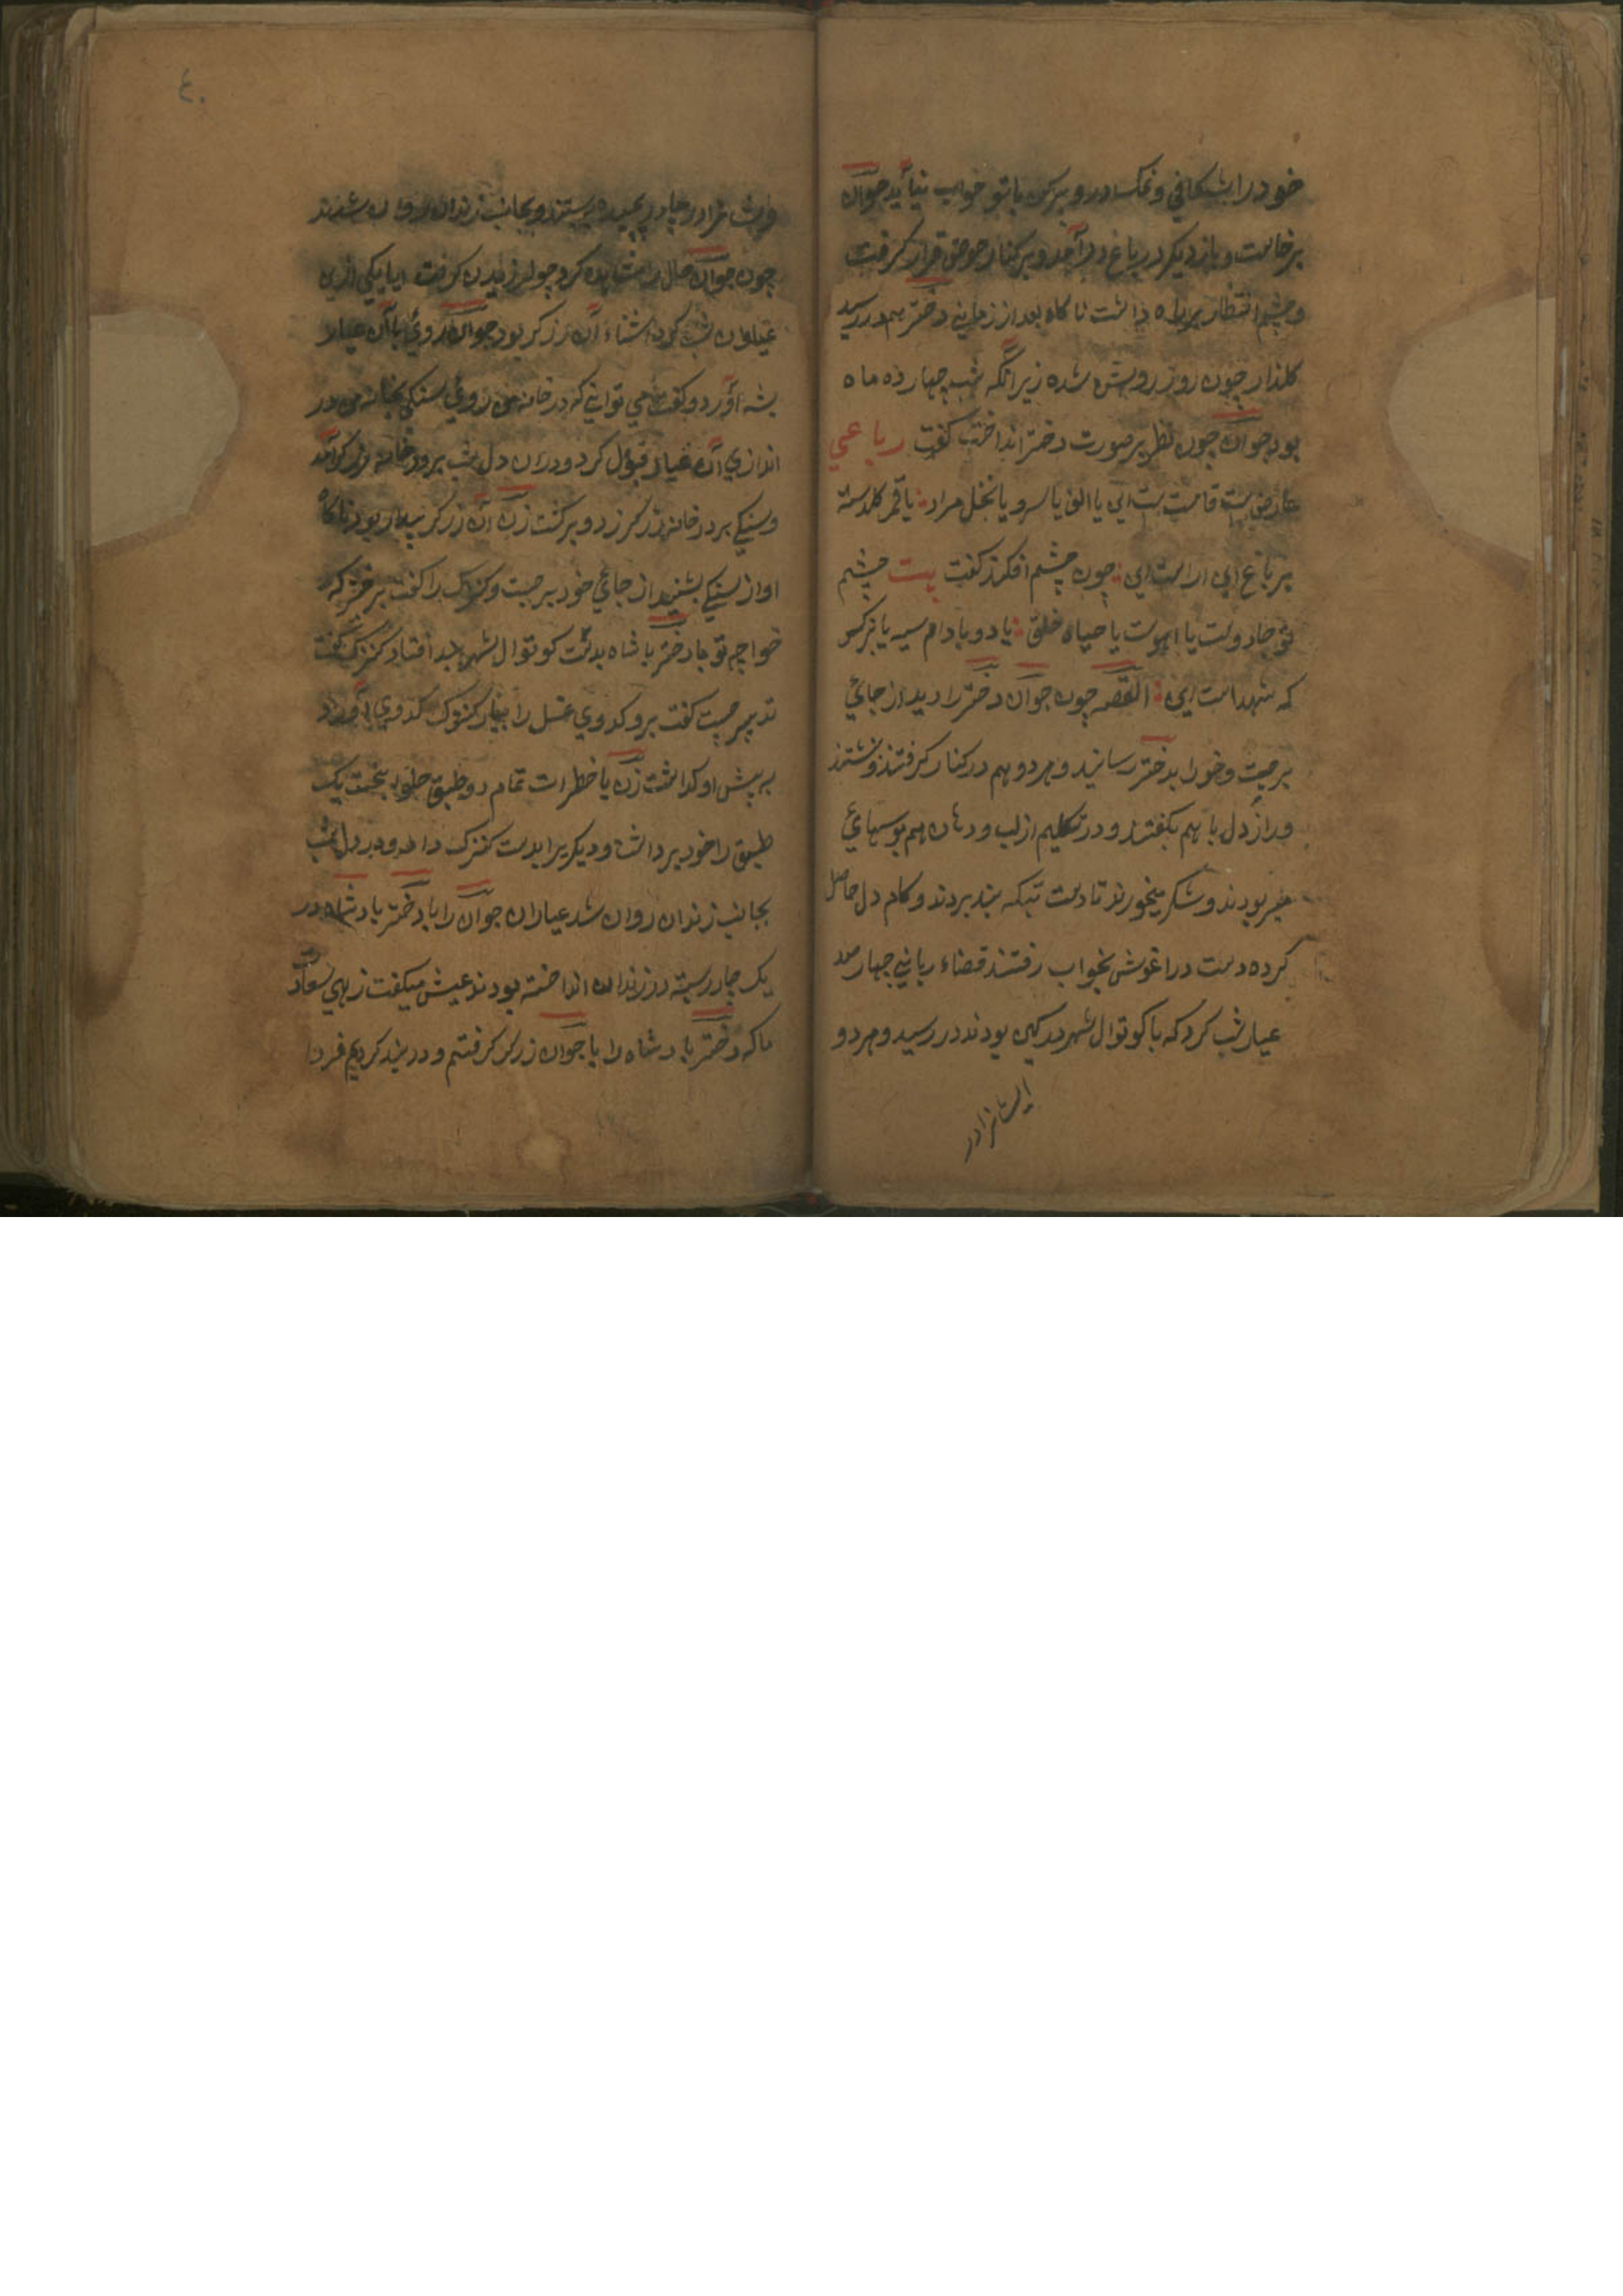 خود را بشکافی و نمک در و پرکن با تو خواب نیاید جوان
برخاست و باز دیگر در باغ درآمد و بر کنار حوض قرار گرفت
و چشم انتظار بر راه داشت ناکاه بعد از زمانی دختر هم در رسید
کلذار چون روز روشن شده زیرانکه شب چهارده ماه
بود جوان چون نظر بر صورت دختر انداخت کفت رباعی
عارض ست قامت ست این یا الف یا سرو یا نخل مراد یا قمر کلدسته
بر باغ این اراست این چون چشم افکند کفت بیت چشم
تو جادوست یا اهوست یا صیاد خلق یا دو بادام سیه یا نرکس
که شهداست این القصه چون جوان دختر را دید از جائی
برجست و خود را بدختر رسانید و هر دو هم در کنار کرفتند و نشتند
و راز دل با هم بکفتند و در تکلیم از لب و دهان هم بوسهای
میربودند و شکر میخوردند تا دست تبکه بند بردند و کام دل حاصل
کرده دست در اغوش بخواب رفتند قضاء ربانی چهار صد
عیار شب کرد که با کوتوال شهر در کمین بودند در رسید و هر دو
ایشانرا در
۴۰
ایشانرا در چادر پیچیده بستند و بجانب زندان روان شدند
چون جوان حال را مشاهده کرد چو لرزیدن کرفت اما یکی ازین
عیاران شب کرد اشناء آن زرکر بود جوان روی با آن عیار
پشه آورد و کفت می توانی که در خانه من روی سنکی بخانه من در
اندازی آن عیار قبول کرد و دران دل شب بر در خانه زرکر آمد
و سنکی بر در خانه زرکر زد و برکشت زن آن زرکر بیدار بود ناکاه
اواز سنکی بشنید از جائی خود برجست و کنیزک را کفت برخیز که
خواجه تو با دختر پادشاه بدست کوتوال شهر بند افتاد کنیزک کفت
تدبیر چیست کفت برو کدوی عسل را بیار کنیزک کدوی آورد
بر پیش او کذاشت زن با خطرات تمام دو طبق حلوا بپخت یک
طبق را خود برداشت و دیکر یرا بدست کنیزک داد و در دل شب
بجانب زندان روان شد عیاران جوان را با دختر پادشاه در
یک چادر بسته در زندان انداخته بودند عیش میکفت زهی سعادت
ما که دختر پادشاه را با جوان زرکر کرفتیم و در بند کردیم فردا